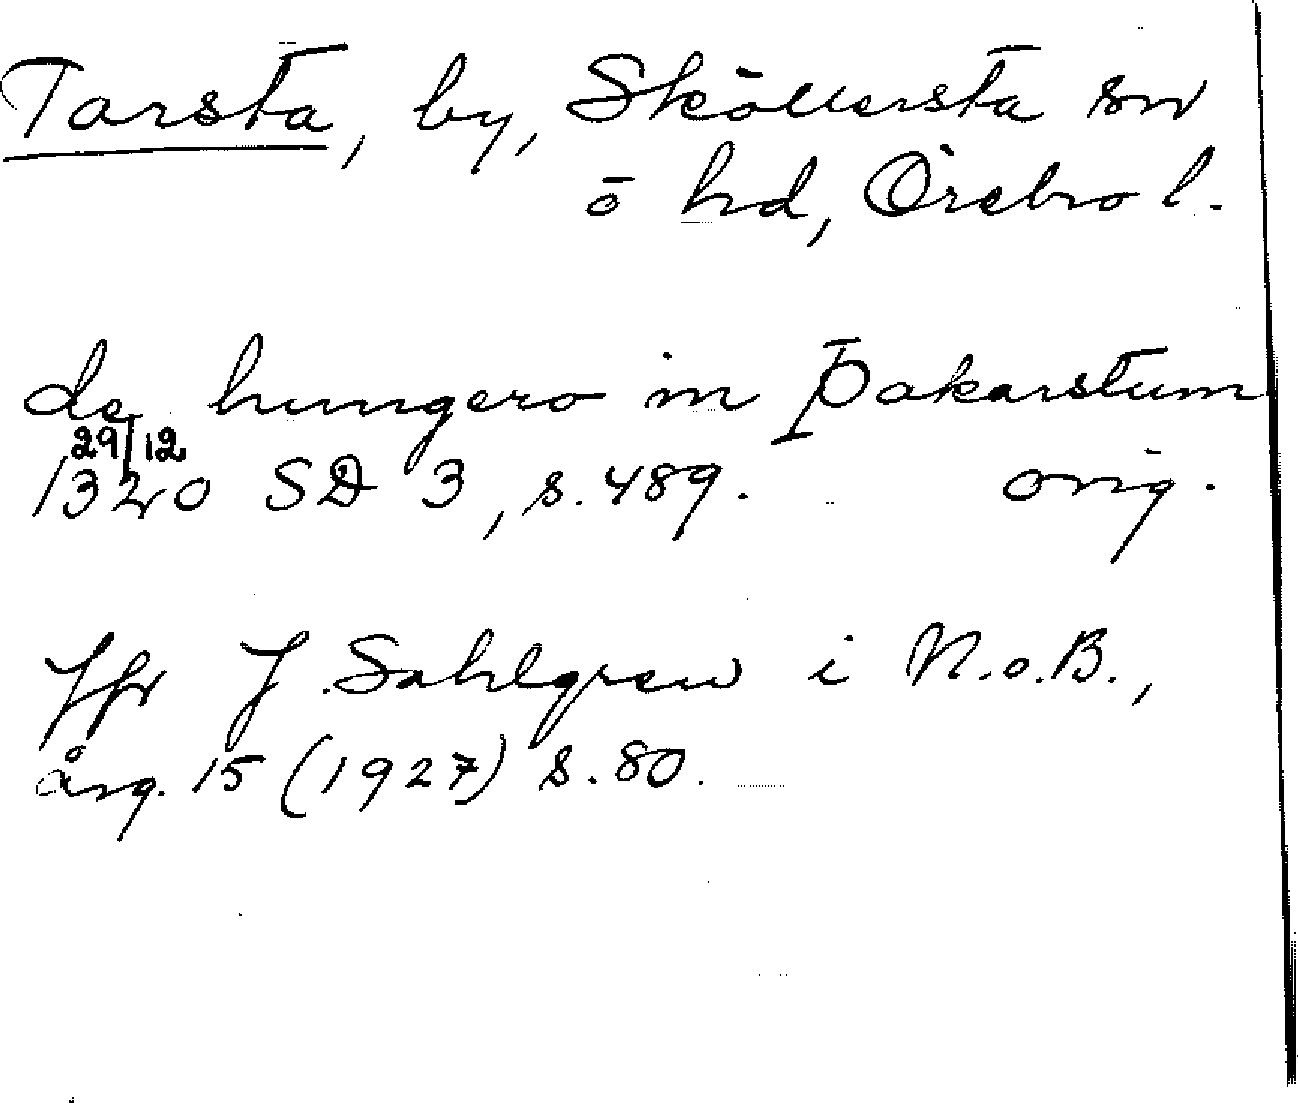 Tarsta, by, Sköllersta sn
o hd, Örebro l.
de hungero in Þakarstum
29/12
1320 SD 3, s. 489. orig.
Jfr J. Sahlgren i N.o.B.,
årg. 15 (1927) s. 80.